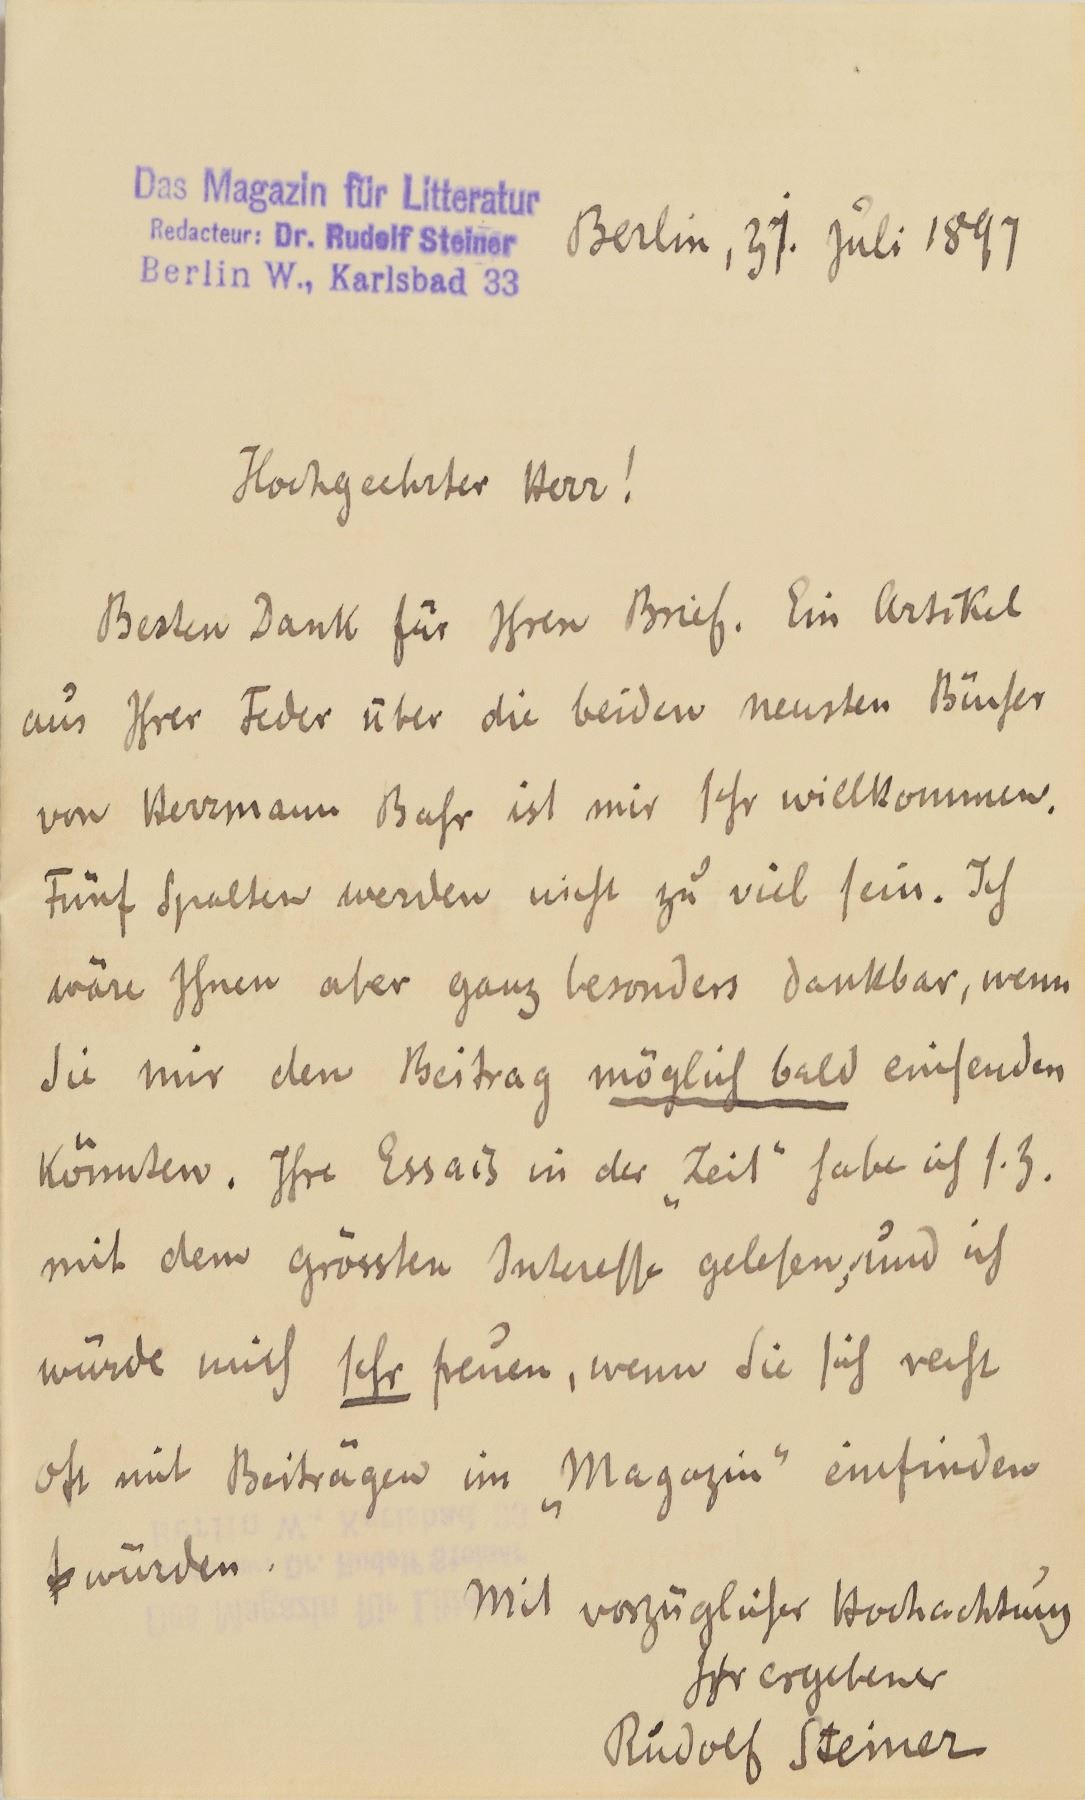 Das Magazin für Litteratur
Redacteur: Dr. Rudolf Steiner
Berlin W., Karlsbad 33
Berlin, 31. Juli 1897
Hochgeehrter Herr!
Besten Dank für Ihren Brief. Ein Artikel
aus Ihrer Feder über die beiden neusten Bücher
von Herrmann Bahr ist mir sehr willkommen.
Fünf Spalten werden nicht zu viel sein. Ich
wäre Ihnen aber ganz besonders dankbar, wenn
Sie mir den Beitrag möglich bald einsenden
könnten. Ihre Essais in der „Zeit“ habe ich s. Z.
mit dem grössten Interesse gelesen, und ich
würde mich sehr freuen, wenn Sie sich recht
oft mit Beiträgen im „Magazin“ einfinden
würden.
Mit vorzüglicher Hochachtung
Ihr ergebener
Rudolf Steiner